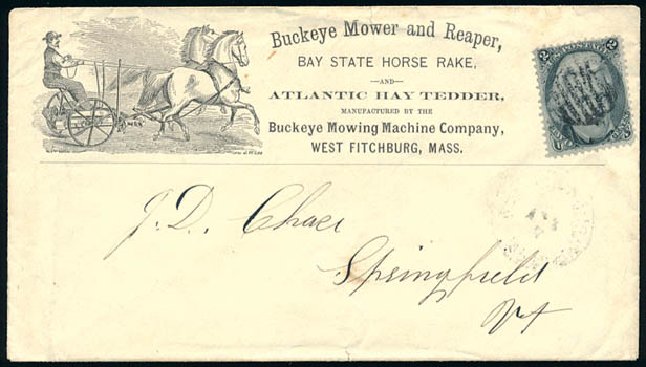 Buckeye Mower and Reaper,
BAY STATE HORSE RAKE,
—AND—
ATLANTIC HAY TEDDER,
MANUFACTURED BY THE
Buckeye Mowing Machine Company,
WEST FITCHBURG, MASS.
2 U.S. POSTAGE 2
J. D. Chace
Springfield
Vt